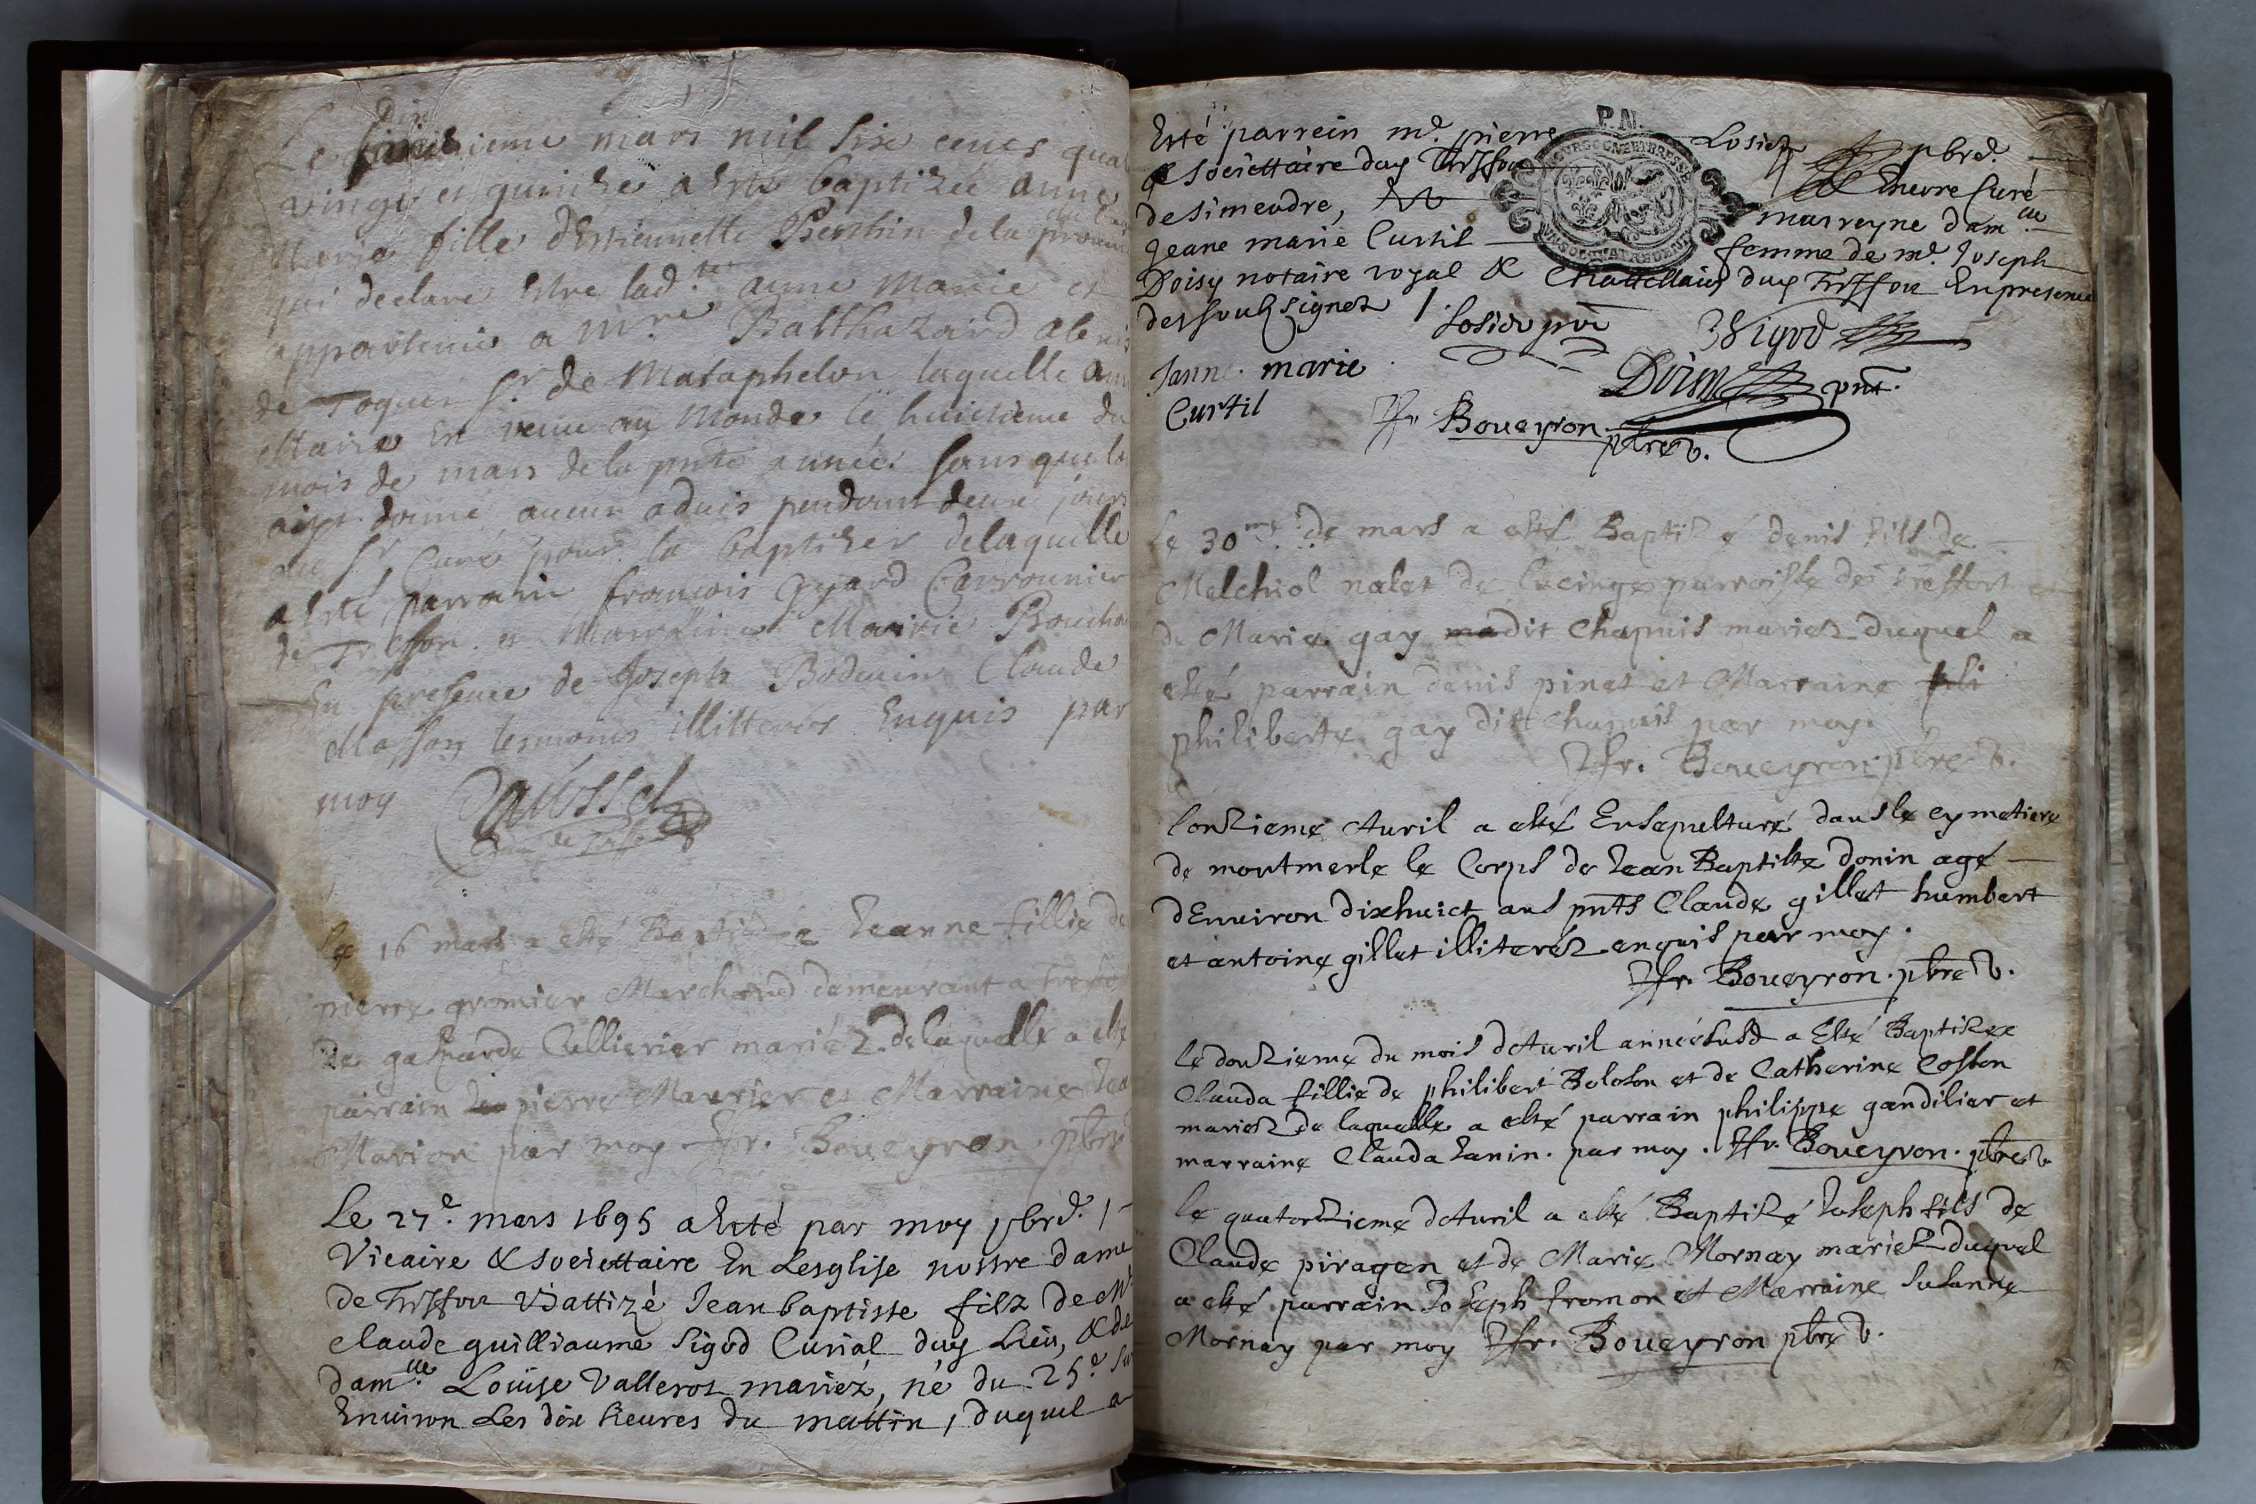 Dix
Le quinzieme mars mil six cents quat
vingt et quinze a esté baptizée anne
Marie fille d'Estiennette Perrin de la
qui declare estre lad.te anne Marie et
appartenir a Mre Balthazard alexis
de Toquet sr de Mataphelon laquelle anne
Marie est venue au monde le huictieme du
mois de mars de la pnte année sans que l'on
aiyt donné aucun aduis pendant deux jours
au sr Curé pour la baptizer de laquelle
a esté parrain francois Gyard Cavrounier
de Treffort et Marraine Marie Bouchu
En presence de Joseph Boduin Claude
Masson tesmoins illitterez Enquis par
moy Gaussel
Le 16 mars a esté Baptizée Jeanne fillie de
pierre gromier Marchand demeurant a treffort
De gasparde Cullierier mariéz de laquelle a esté
parrain pierre Maurier et Marraine Jea
Marion par moy Jfr. Boueyron . pbre
Le 27e. mars 1695 a Esté par moy pbre. /
Vicaire & societtaire En Lesglise nostre dame
de Treffort Battizé Jean baptiste filz de Mr
Claude guilliaume Sigod Curial duy Lieu, & de
damlle Louise Valleros mariéz, né du 25e sur
Environ Les dix heures du mattin, duquel a
Esté parrein me. pierre Losier pbre.
& societtaire duy Treffort & Curé
de simendre, marreyne damlle
Jeane marie Curtil femme de me. Joseph
Doisy notaire royal & Chattellain duy Treffort En presence
des soubsignez / . Losier pn Sigod
Janne marie Doisy pnt.
Curtil Jfr Boueyron
pbre v.
P.N.
Le 30me de mars a esté Baptizé denis fils de
Melchiol nalet de lucinge parroisse de treffort et
de Marie gay dit Chapuis mariez duquel a
esté parrain denis pinet et Marraine phi
philiberte gay dit Chapuis par moy.
Jfr. Boueyron pbre v.
L'onzieme Auril a esté Ensepulturé dans le cymetiere
de montmerle le Corps de Jean Baptiste donin agé
d'Enuiron dixhuict ans pnts Claude gillet humbert
et antoine gillet illiteréz enquis par moy.
Jfr. Boueyron . pbre v.
Le douzieme du mois d'Auril année susd a Esté Baptizee
Clauda fillie de philibert Boloson et de Catherine Coston
mariez de laquelle a esté parrain philippe gandilier et
marraine Clauda Janin . par moy . Jfr. Boueyron . pbre v.
Le quatorzieme d'Auril a esté Baptizé Joseph fils de
Claude piragen et de Marie Mornay mariez duquel
a esté parrain Joseph fromon et Marraine Susanne
Mornay par moy Jfr. Boueyron pbre v.